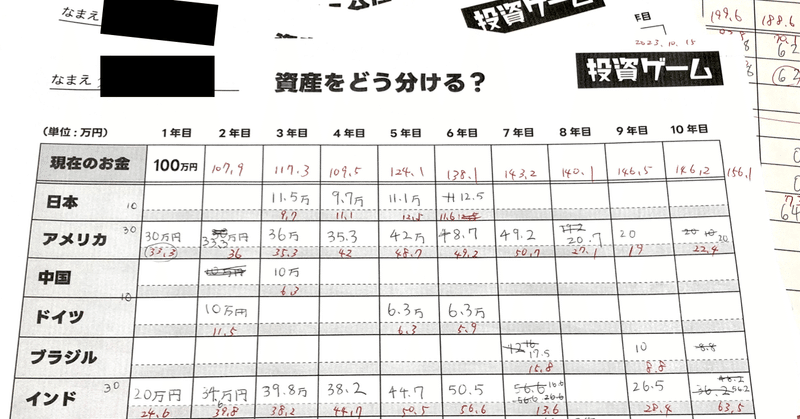 なまえ
投資ゲーム
2023.10.15
199.6 188.6
なまえ
資産をどう分ける？
投資ゲーム
(単位：万円) 1年目 2年目 3年目 4年目 5年目 6年目 7年目 8年目 9年目 10年目
現在のお金 100万円 107.9 117.3 109.5 124.1 138.1 143.2 140.1 146.5 146.2 156.1
日本 10 11.5万 9.7万 11.1万 12.5
9.7 11.1 12.5 11.6
アメリカ 30 30万円 33.3 36万 35.3 42万 48.7 49.2 20.7 20 20
33.3 36 35.3 42 48.7 49.2 50.7 27.1 19 22.4
中国 10万円 10万
6.3
10
ドイツ 10万円 6.3万 6.3万
11.5 6.3 5.9
ブラジル 17.5 10 8.8
15.8 8.8
インド 30 20万円 34万円 39.8万 38.2 44.7 50.5 56.6 26.5
24.6 39.8 38.2 44.7 50.5 56.6 13.6 28.4 63.5